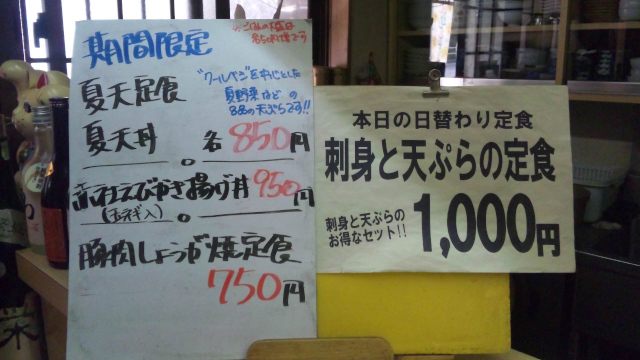 期間限定
夏天定食
"クールベジ"を中心とした
夏野菜などの
8品の天ぷらです!!
夏天丼 。各850円
えびかき揚げ丼 950円
(玉ネギ入) 。
豚肉しょうが焼定食
750円
本日の日替わり定食
刺身と天ぷらの定食
刺身と天ぷらの
お得なセット!!
1,000円